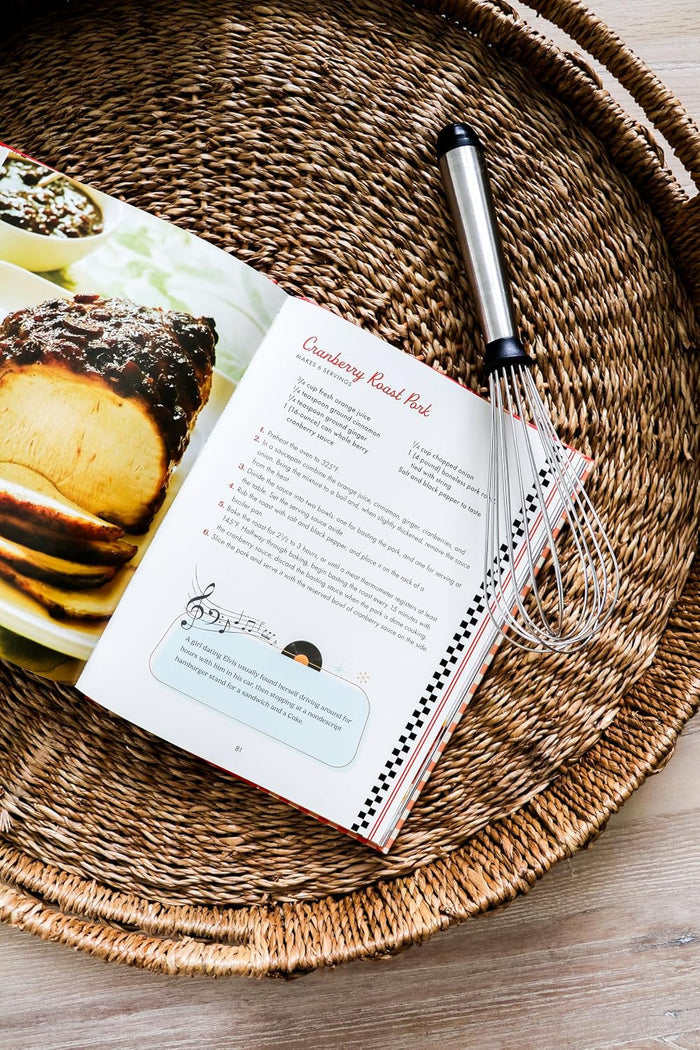 Cranberry Roast Pork
MAKES 6 SERVINGS
¾ cup fresh orange juice
¼ teaspoon ground cinnamon
¼ teaspoon ground ginger
1 (16-ounce) can whole berry
cranberry sauce
¼ cup chopped onion
1 (4-pound) boneless pork
tied with string
Salt and black pepper to taste
1. Preheat the oven to 325°F.
2. In a saucepan combine the orange juice, cinnamon, ginger, cranberries, and
onion. Bring the mixture to a boil and, when slightly thickened, remove the sauce
from the heat.
3. Divide the sauce into two bowls: one for basting the pork, and one for serving at
the table. Set the serving sauce aside.
4. Rub the roast with salt and black pepper, and place it on the rack of a
broiler pan.
5. Bake the roast for 2½ to 3 hours, or until a meat thermometer registers at least
145°F. Halfway through baking, begin basting the roast every 15 minutes with
the cranberry sauce. Discard the basting sauce when the pork is done cooking.
6. Slice the pork and serve it with the reserved bowl of cranberry sauce on the side.
A girl dating Elvis usually found herself driving around for
hours with him in his car, then stopping at a nondescript
hamburger stand for a sandwich and a Coke.
81